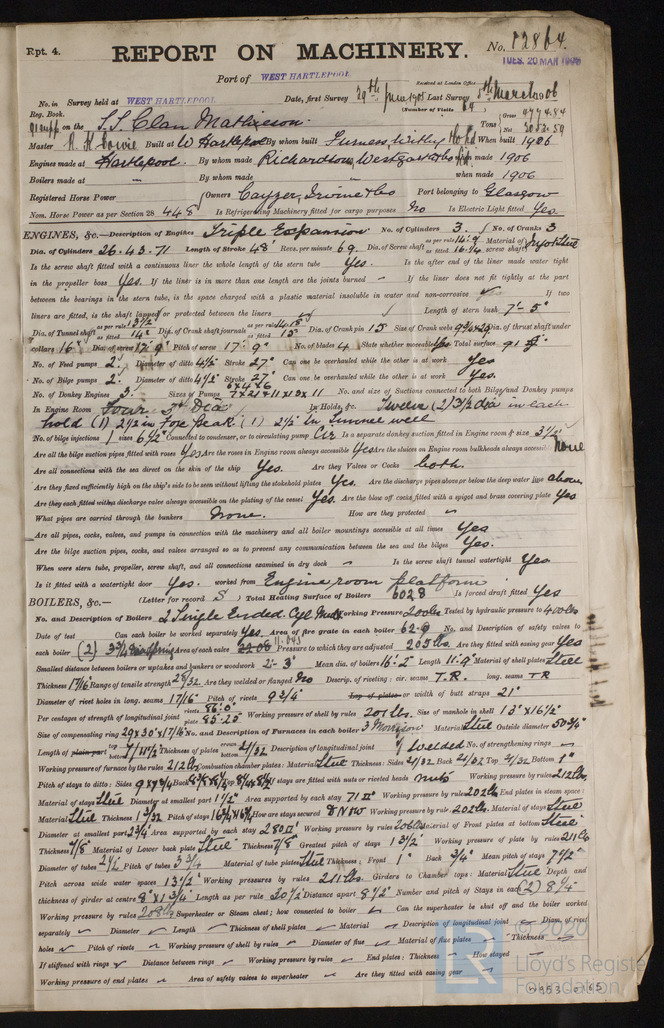 Rpt. 4.
REPORT ON MACHINERY.
No. 12864.
TUES. 20 MAR 1906
Port of WEST HARTLEPOOL
Received at London Office
No. in Survey held at WEST HARTLEPOOL Date, first Survey 29th June 1905 Last Survey 5th March 1906
Reg. Book. (Number of Visits 69)
on the S.S. Clan Matheson Tons Gross 4774.84 Net 3053.59
Master Built at W Hartlepool By whom built Furness, Withy & Co Ld When built 1906
Engines made at Hartlepool By whom made Richardsons, Westgarth & Co when made 1906
Boilers made at " By whom made " when made 1906
Registered Horse Power Owners Cayzer, Irvine & Co Port belonging to Glasgow
Nom. Horse Power as per Section 28 448 Is Refrigerating Machinery fitted for cargo purposes No Is Electric Light fitted Yes.
ENGINES, &c.—Description of Engines Triple Expansion No. of Cylinders 3. No. of Cranks 3
Dia. of Cylinders 26.43.71 Length of Stroke 48" Revs. per minute 69 Dia. of Screw shaft as per rule 14.9 Material of screw shaft Ingot Steel
Is the screw shaft fitted with a continuous liner the whole length of the stern tube Yes. Is the after end of the liner made water tight
in the propeller boss Yes. If the liner is in more than one length are the joints burned If the liner does not fit tightly at the part
between the bearings in the stern tube, is the space charged with a plastic material insoluble in water and non-corrosive If two
liners are fitted, is the shaft lapped or protected between the liners Length of stern bush 7'-5"
Dia. of Tunnel shaft as per rule 13½" as fitted 14" Dia. of Crank shaft journals as per rule as fitted 15" Dia. of Crank pin 15 Size of Crank webs Dia. of thrust shaft under
collars 16" Dia. of screw 17'.9" Pitch of screw 17'.9" No. of blades 4 State whether moveable Yes Total surface
No. of Feed pumps 2. Diameter of ditto 4½" Stroke 27" Can one be overhauled while the other is at work Yes
No. of Bilge pumps 2. Diameter of ditto 4½" Stroke 27" Can one be overhauled while the other is at work Yes.
No. of Donkey Engines 3. Sizes of Pumps No. and size of Suctions connected to both Bilge and Donkey pumps
In Engine Room Four 3½ Dia In Holds, &c. Twelve (2) 3½ dia in each
hold (1) 2½ in Fore peak (1) 2½ In Tunnel well
No. of bilge injections 1 sizes 6½" Connected to condenser, or to circulating pump Cir Is a separate donkey suction fitted in Engine room & size 3½
Are all the bilge suction pipes fitted with roses Yes Are the roses in Engine room always accessible Yes Are the sluices on Engine room bulkheads always accessible None
Are all connections with the sea direct on the skin of the ship Yes. Are they Valves or Cocks both.
Are they fixed sufficiently high on the ship's side to be seen without lifting the stokehold plates Yes. Are the discharge pipes above or below the deep water line above
Are they each fitted with a discharge valve always accessible on the plating of the vessel Yes. Are the blow off cocks fitted with a spigot and brass covering plate Yes
What pipes are carried through the bunkers None. How are they protected
Are all pipes, cocks, valves, and pumps in connection with the machinery and all boiler mountings accessible at all times Yes
Are the bilge suction pipes, cocks, and valves arranged so as to prevent any communication between the sea and the bilges Yes.
When were stern tube, propeller, screw shaft, and all connections examined in dry dock Is the screw shaft tunnel watertight Yes
Is it fitted with a watertight door Yes. worked from Engine room platform
BOILERS, &c.— (Letter for record S) Total Heating Surface of Boilers 6028 Is forced draft fitted Yes
No. and Description of Boilers 2 Single Ended. Cyl. Mult Working Pressure 200lbs Tested by hydraulic pressure to 400lbs
Date of test Can each boiler be worked separately Yes. Area of fire grate in each boiler 62.9 No. and Description of safety valves to
each boiler (2) Area of each valve 11.045 Pressure to which they are adjusted 205lbs. Are they fitted with easing gear Yes
Smallest distance between boilers or uptakes and bunkers or woodwork 2'-3" Mean dia. of boilers 16'-2" Length 11'-9" Material of shell plates Steel
Thickness 1 7/16 Range of tensile strength 28/32. Are they welded or flanged No Descrip. of riveting: cir. seams T.R. long. seams TR
Diameter of rivet holes in long. seams 1 7/16" Pitch of rivets 9¾" Lap of plates or width of butt straps 21"
Per centages of strength of longitudinal joint rivets 86.0 plate 85.25 Working pressure of shell by rules 201lbs. Size of manhole in shell 13" x 16½"
Size of compensating ring No. and Description of Furnaces in each boiler 3 Morison Material Steel Outside diameter 50¾"
Length of plain part top bottom Thickness of plates crown bottom 21/32 Description of longitudinal joint Welded No. of strengthening rings
Working pressure of furnace by the rules 212lbs Combustion chamber plates: Material Steel Thickness: Sides 21/32 Back 21/32 Top 21/32 Bottom 1"
Pitch of stays to ditto: Sides Back Top If stays are fitted with nuts or riveted heads nuts Working pressure by rules 212lbs.
Material of stays Steel Diameter at smallest part 1½" Area supported by each stay 71 Working pressure by rules 202lbs End plates in steam space:
Material Steel Thickness 1 3/32 Pitch of stays How are stays secured DN&W Working pressure by rules 202lbs. Material of stays Steel
Diameter at smallest part 2¾" Area supported by each stay 280 Working pressure by rules Material of Front plates at bottom Steel
Thickness 7/8" Material of Lower back plate Steel Thickness 7/8" Greatest pitch of stays 13½" Working pressure of plate by rules 211lbs
Diameter of tubes 2½" Pitch of tubes 3¾ Material of tube plates Steel Thickness: Front 1" Back ¾" Mean pitch of stays 7½"
Pitch across wide water spaces 13½" Working pressures by rules 211lbs. Girders to Chamber tops: Material Steel Depth and
thickness of girder at centre 8" x 1¾" Length as per rule 30½ Distance apart 8½" Number and pitch of Stays in each (2) 8¼"
Working pressure by rules 208lbs Superheater or Steam chest; how connected to boiler Can the superheater be shut off and the boiler worked
separately Diameter Length Thickness of shell plates Material Description of longitudinal joint Diam. of rivet
holes Pitch of rivets Working pressure of shell by rules Diameter of flue Material of flue plates Thickness
If stiffened with rings Distance between rings Working pressure by rules End plates: Thickness How stayed
Working pressure of end plates Area of safety valves to superheater Are they fitted with easing gear
© 2020
Lloyd's Register
Foundation
W953-0165